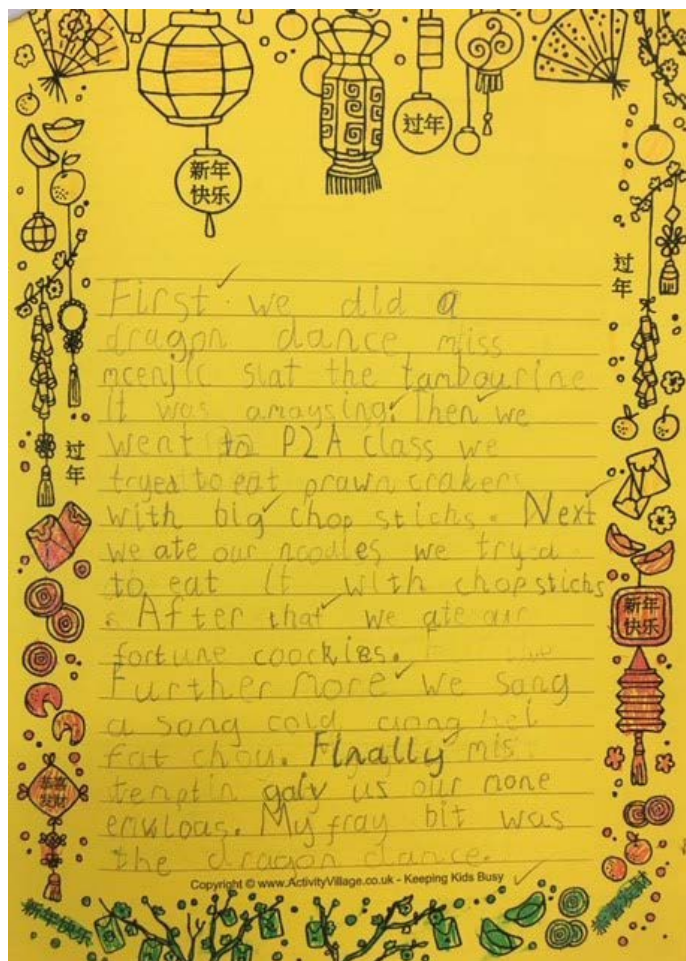 过年
新年
快乐
过年
First we did a
dragon dance miss
mcenjic slat the tambourine
it was amaysing. Then we
went to P2A class we
tryed to eat prawn crakers
with big chop stichs. Next
we ate our noodles we tryd
to eat it with chopstichs
. After that we ate our
fortune coorkies.
Further more we sang
a song cold gong hei
fat chou. Finally mis
temptin gaiv us our mone
envlous. My fray bit was
the dragon dance.
过年
新年
快乐
恭喜
发财
Copyright © www.ActivityVillage.co.uk - Keeping Kids Busy
新年快乐
恭喜发财